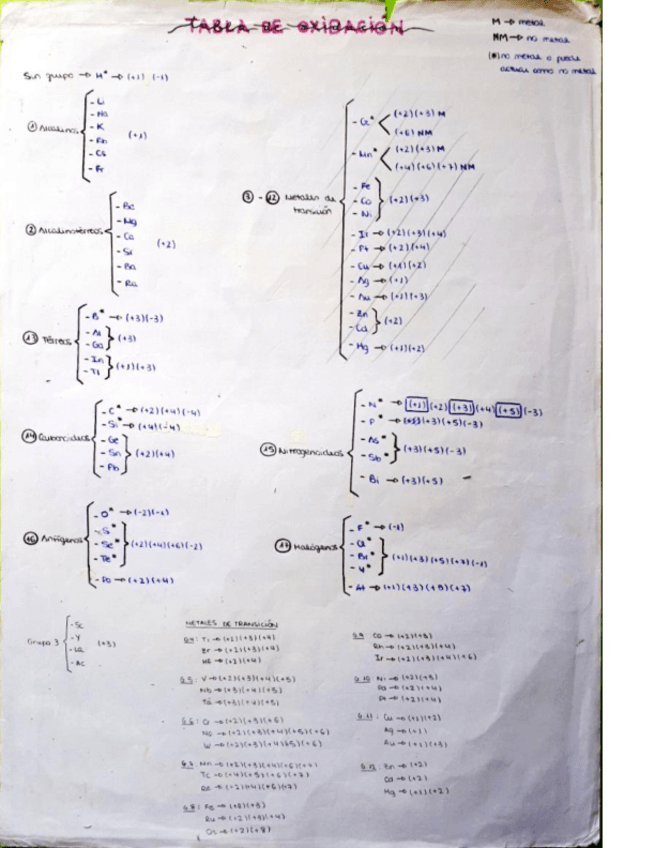 TABLA DE OXIDACIÓN
M → metal
NM → no metal
(*) no metal o puede
actuar como no metal
Sin grupo → H* → (+1) (-1)
① Alcalinos
- Li
- Na
- K
- Rb
- Cs
- Fr
(+1)
② Alcalinotérreos
- Be
- Mg
- Ca
- Sr
- Ba
- Ra
(+2)
⑬ Térreos
- B* → (+3)(-3)
- Al
- Ga
(+3)
- In
- Tl
(+1)(+3)
⑭ Carbonoideos
- C* → (+2)(+4)(-4)
- Si* → (+4)(-4)
- Ge
- Sn
- Pb
(+2)(+4)
⑯ Anfígenos
- O* → (-2)(-1)
- S*
- Se*
- Te*
(+2)(+4)(+6)(-2)
- Po → (+2)(+4)
- ⑫ Metales de
transición
- Cr*
(+2)(+3) M
(+6) NM
- Mn*
(+2)(+3) M
(+4)(+6)(+7) NM
- Fe
- Co
- Ni
(+2)(+3)
- Ir → (+2)(+3)(+4)
- Pt → (+2)(+4)
- Cu → (+1)(+2)
- Ag → (+1)
- Au → (+1)(+3)
- Zn
- Cd
(+2)
- Hg → (+1)(+2)
⑮ Nitrogenoideos
- N* → (+1)(+2)(+3)(+4)(+5)(-3)
- P* → (+3)(+5)(-3)
- As*
- Sb*
(+3)(+5)(-3)
- Bi → (+3)(+5)
⑰ Halógenos
- F* → (-1)
- Cl*
- Br*
(+1)(+3)(+5)(+7)(-1)
- At → (+1)(+3)(+5)(+7)
Grupo 3
- Sc
- Y
- La
- Ac
(+3)
METALES DE TRANSICIÓN
G.4: Ti → (+2)(+3)(+4)
Zr → (+2)(+3)(+4)
Hf → (+2)(+4)
G.5: V → (+2)(+3)(+4)(+5)
Nb → (+3)(+4)(+5)
Ta → (+3)(+4)(+5)
G.6: Cr → (+2)(+3)(+6)
Mo → (+2)(+3)(+4)(+5)(+6)
W → (+2)(+3)(+4)(+5)(+6)
G.7: Mn → (+2)(+3)(+4)(+6)(+7)
Tc → (+4)(+5)(+6)(+7)
Re → (+2)(+4)(+6)(+7)
G.8: Fe → (+2)(+3)
Ru → (+2)(+3)(+4)
Os → (+2)(+8)
G.9: Co → (+2)(+3)
Rh → (+2)(+3)(+4)
Ir → (+2)(+3)(+4)(+6)
G.10: Ni → (+2)(+3)
Pd → (+2)(+4)
Pt → (+2)(+4)
G.11: Cu → (+1)(+2)
Ag → (+1)
Au → (+1)(+3)
G.12: Zn → (+2)
Cd → (+2)
Hg → (+1)(+2)